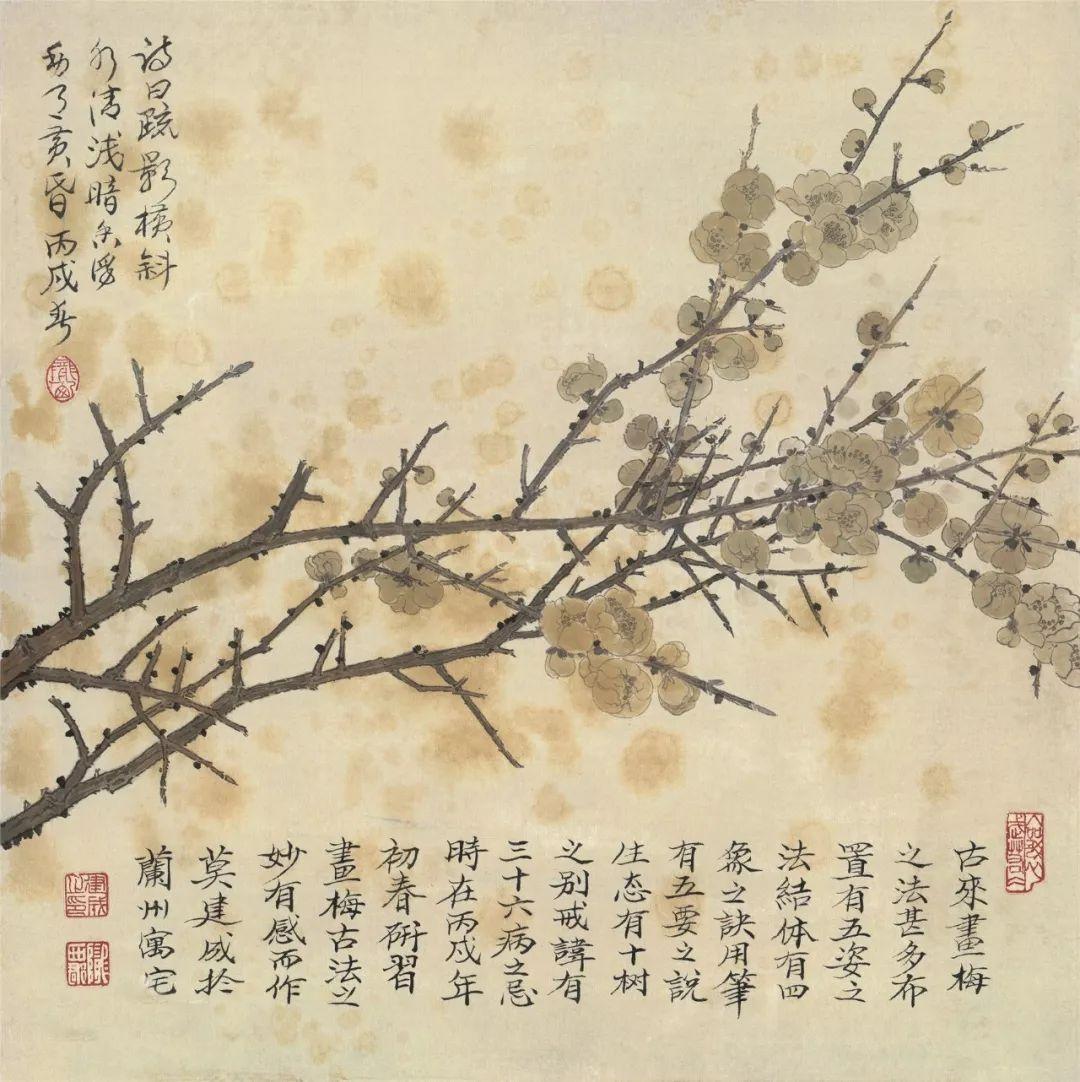 诗曰疏影横斜
水清浅暗香浮
动月黄昏丙戌春
古來畫梅
之法甚多布
置有五姿之
法結体有四
象之訣用筆
有五要之説
生态有十树
之别戒諱有
三十六病之忌
時在丙戌年
初春研習
畫梅古法之
妙有感而作
莫建成於
蘭州寓宅